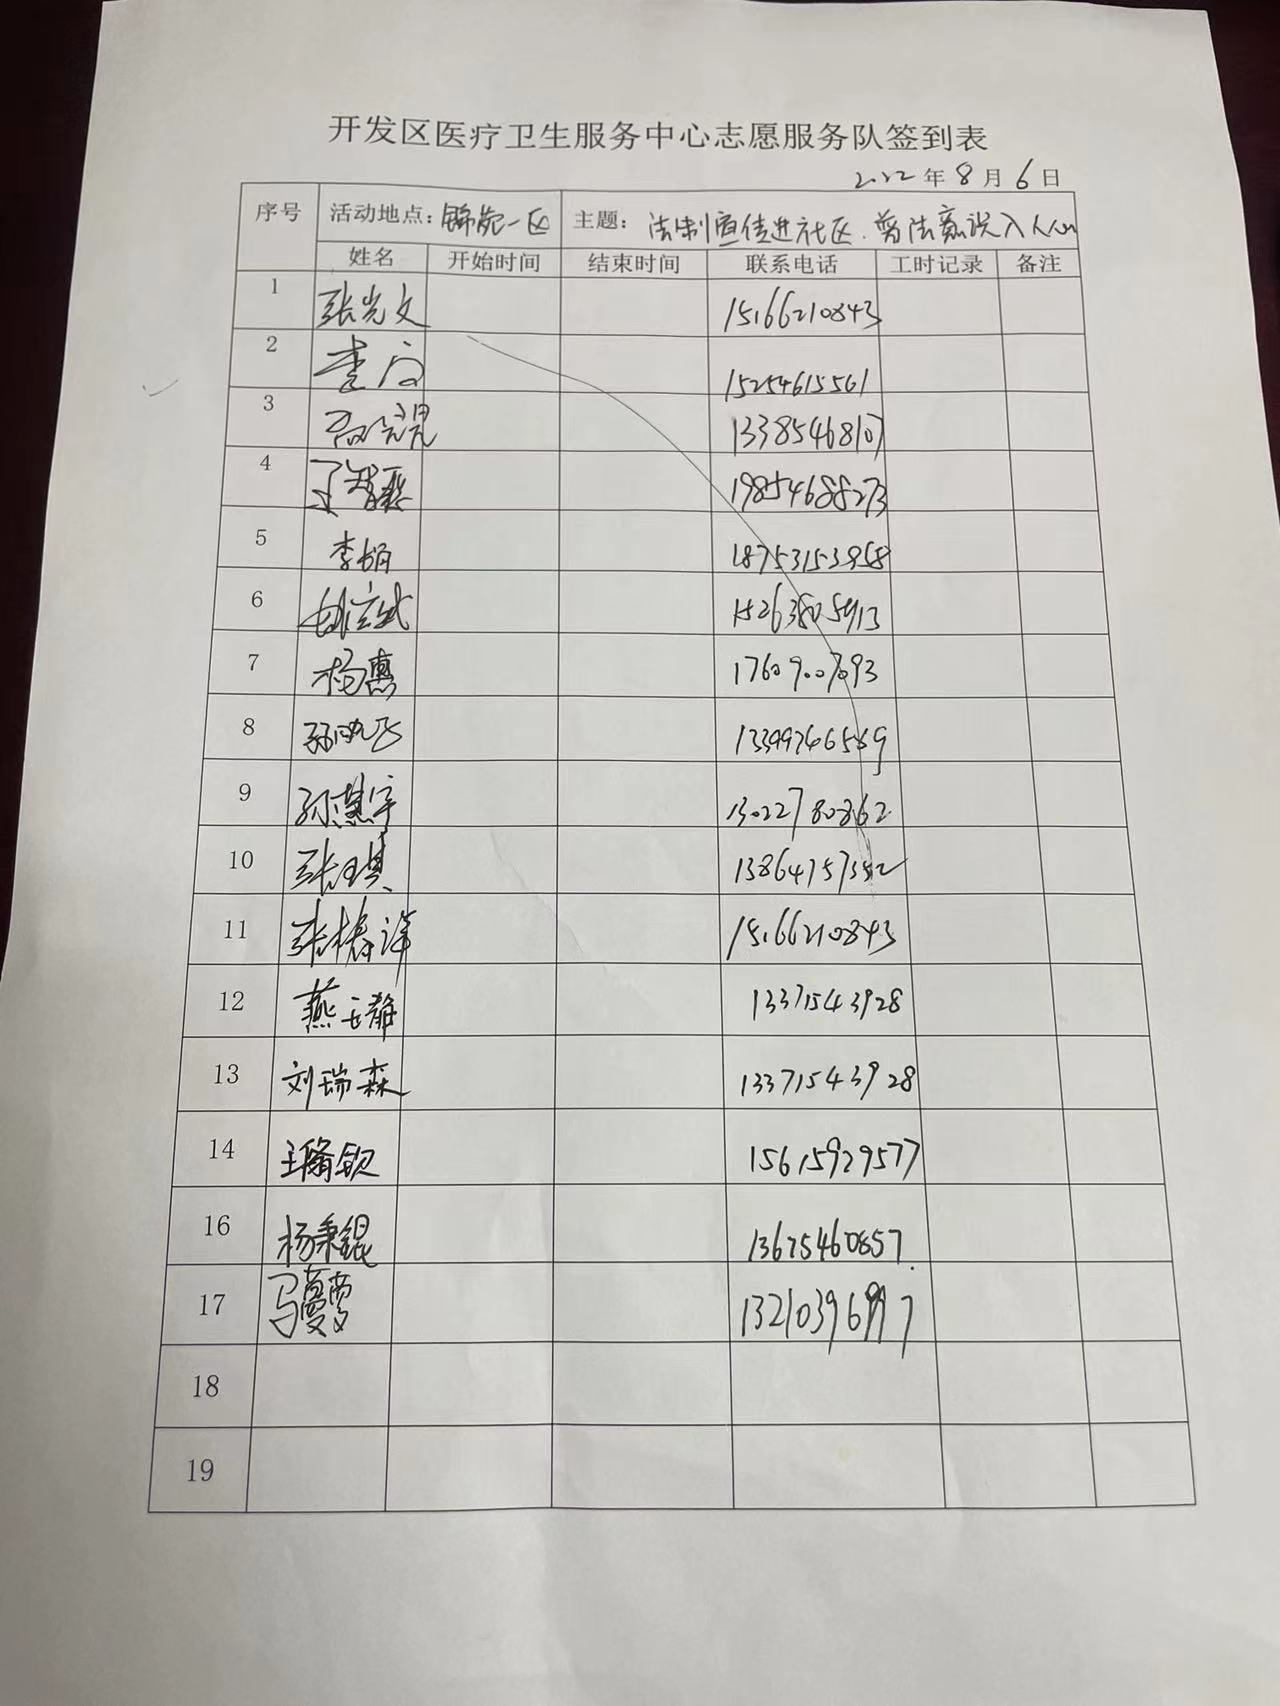 开发区医疗卫生服务中心志愿服务队签到表
2022年8月6日
序号 活动地点：锦苑一区 主题：法制宣传进社区.普法意识入人心
姓名 开始时间 结束时间 联系电话 工时记录 备注
1 张光文 15166210843
2 15254615561
3 13385468107
4 19854688273
5 李娟 18753153958
6 15263805913
7 杨惠 17609007093
8 孙凤飞
9 孙淇宇 13022780862
10 张琪 13864757352
11 张椿洋 15166210843
12 燕玉静 13371543928
13 刘瑞森 13371543928
14 15615929577
16 杨秉锟 13675460857
17 马蔓萝
18
19